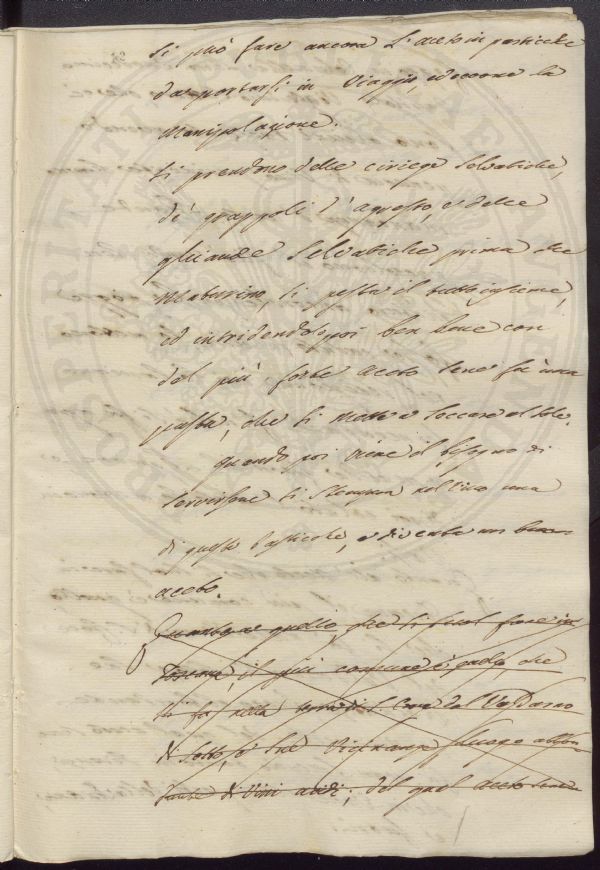 Si può fare ancora L'aceto in pasticche
da portarsi in Viaggio, ed eccone la
Manipolazione.
Si prendono delle ciriege Selvatiche,
de' grappoli d'agresto, e delle
ghiande Selvatiche prima che
Maturino, Si pesta il tutto insieme,
ed intridendolo poi ben bene con
del più forte aceto Sene fà una
pasta, che Si Mette a Seccare al Sole.
quando poi viene il bisogno di
Servirsene Si Stempra nel Vino una
di queste Pasticche, e diventa un buon
aceto.
Quanto a quello, che Si Suol fare in
Toscana, il più comune è quello, che
Si fa nella del Valdarno
di Sotto, e Sue Vicinanze, Luogo abbon
dante di Vini acidi; del qual aceto Sene